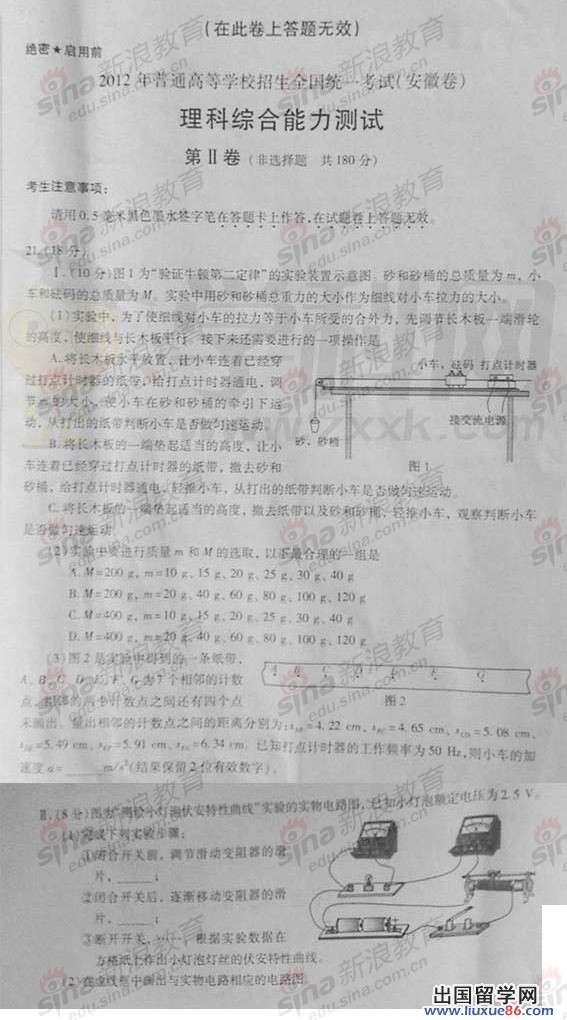 (在此卷上答题无效)
绝密★启用前
2012年普通高等学校招生全国统一考试(安徽卷)
理科综合能力测试
第Ⅱ卷(非选择题 共180分)
考生注意事项:
请用0.5毫米黑色墨水签字笔在答题卡上作答,在试题卷上答题无效。
21.(18分)
Ⅰ.(10分)图1为“验证牛顿第二定律”的实验装置示意图。砂和砂桶的总质量为m,小
车和砝码的总质量为M。实验中用砂和砂桶总重力的大小作为细线对小车拉力的大小。
(1)实验中,为了使细线对小车的拉力等于小车所受的合外力,先调节长木板一端滑轮
的高度,使细线与长木板平行。接下来还需要进行的一项操作是
A.将长木板水平放置,让小车连着已经穿
过打点计时器的纸带,给打点计时器通电,调
节m的大小,使小车在砂和砂桶的牵引下运
动,从打出的纸带判断小车是否做匀速运动。
小车、砝码 打点计时器
接交流电源
砂、砂桶
图1
B.将长木板的一端垫起适当的高度,让小
车连着已经穿过打点计时器的纸带,撤去砂和
砂桶,给打点计时器通电,轻推小车,从打出的纸带判断小车是否做匀速运动。
C.将长木板的一端垫起适当的高度,撤去纸带以及砂和砂桶,轻推小车,观察判断小车
是否做匀速运动
(2)实验中要进行质量m和M的选取,以下最合理的一组是
A.M=200 g,m=10 g、15 g、20 g、25 g、30 g、40 g
B.M=200 g,m=20 g、40 g、60 g、80 g、100 g、120 g
C.M=400 g,m=10 g、15 g、20 g、25 g、30 g、40 g
D.M=400 g,m=20 g、40 g、60 g、80 g、100 g、120 g
(3)图2是实验中得到的一条纸带,
A、B、C、D、E、F、G为7个相邻的计数
点,相邻的两个计数点之间还有四个点
A B C D E F G
图2
未画出。量出相邻的计数点之间的距离分别为:sAB=4.22 cm、sBC=4.65 cm、sCD=5.08 cm、
sDE=5.49 cm、sEF=5.91 cm、sFG=6.34 cm。已知打点计时器的工作频率为50 Hz,则小车的加
速度a=______m/s²(结果保留2位有效数字)。
Ⅱ.(8分)图为“测绘小灯泡伏安特性曲线”实验的实物电路图,已知小灯泡额定电压为2.5 V。
(1)完成下列实验步骤:
①闭合开关前,调节滑动变阻器的滑
片,______;
②闭合开关后,逐渐移动变阻器的滑
片,______;
③断开开关,……。根据实验数据在
方格纸上作出小灯泡灯丝的伏安特性曲线。
(2)在虚线框中画出与实物电路相应的电路图
新浪教育
sina
edu.sina.com.cn
www.zxxk.com
出国留学网
www.liuxue86.com